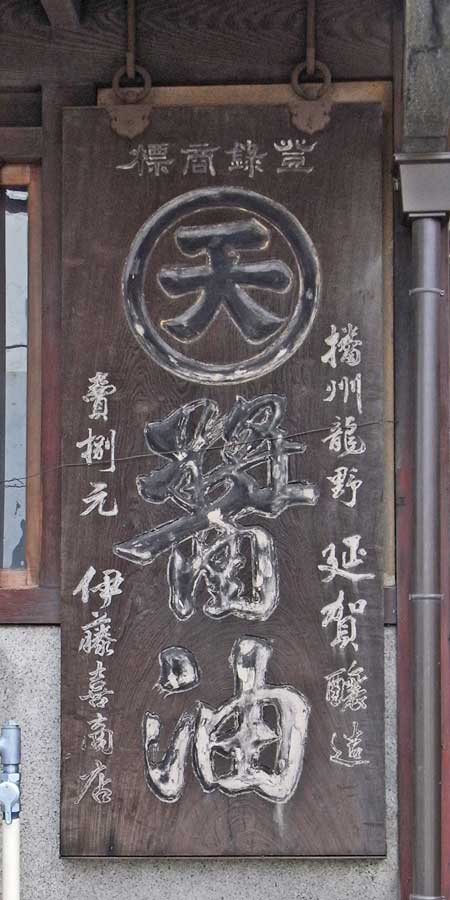 登錄商標
播州龍野 延賀釀造
天
醬油
賣捌元 伊藤喜商店